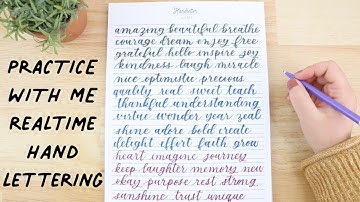 PRACTICE
WITH ME
REALTIME
HAND
LETTERING
amazing beautiful breathe
courage dream enjoy free
grateful hello inspire joy
kindness laugh miracle
nice optimistic precious
quality real sweet teach
thankful understanding
virtue wonder year zeal
shine adore bold create
delight effort faith grow
heart imagine journey
keep laughter memory new
okay purpose rest strong
sunshine trust unique